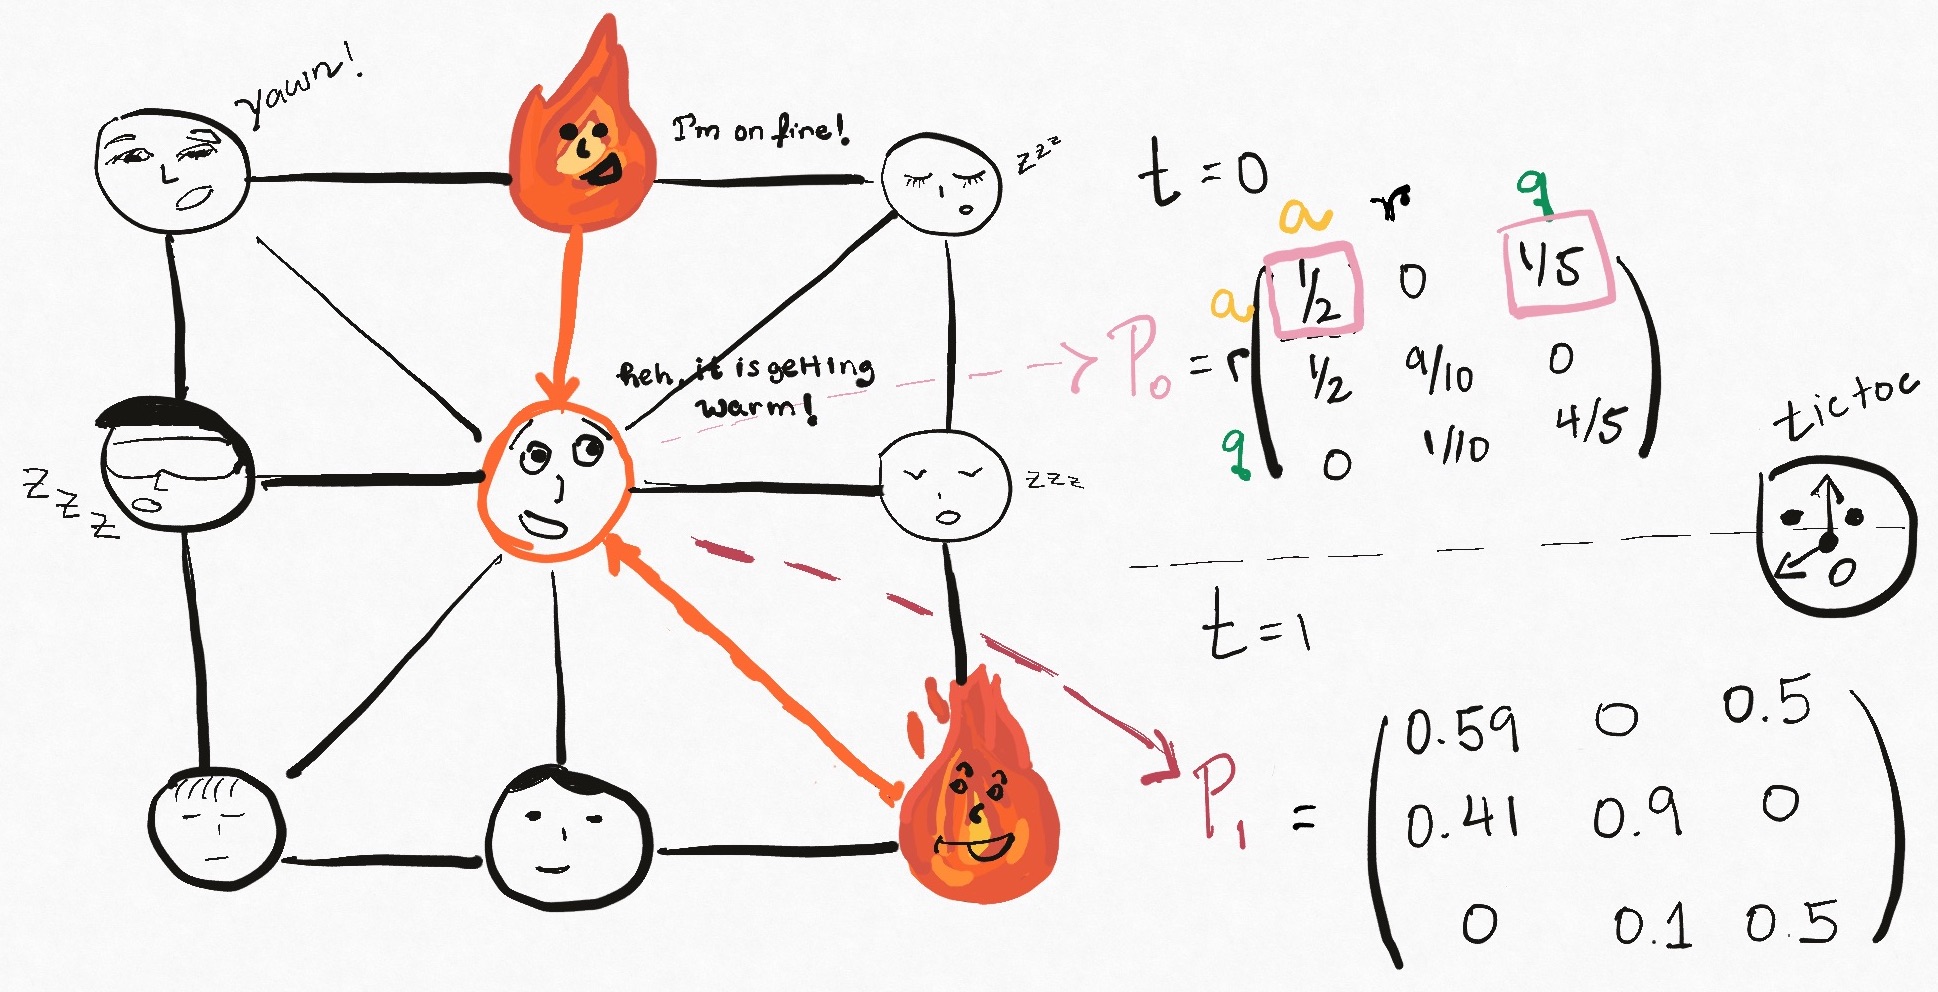 yawn!
I'm on fire!
zzz
heh, it is getting
warm!
zzz
zzz
t = 0
a r q
a 1/2 0 1/5
P0 = r 1/2 9/10 0
q 0 1/10 4/5
tictoc
t = 1
0.59 0 0.5
P1 = 0.41 0.9 0
0 0.1 0.5